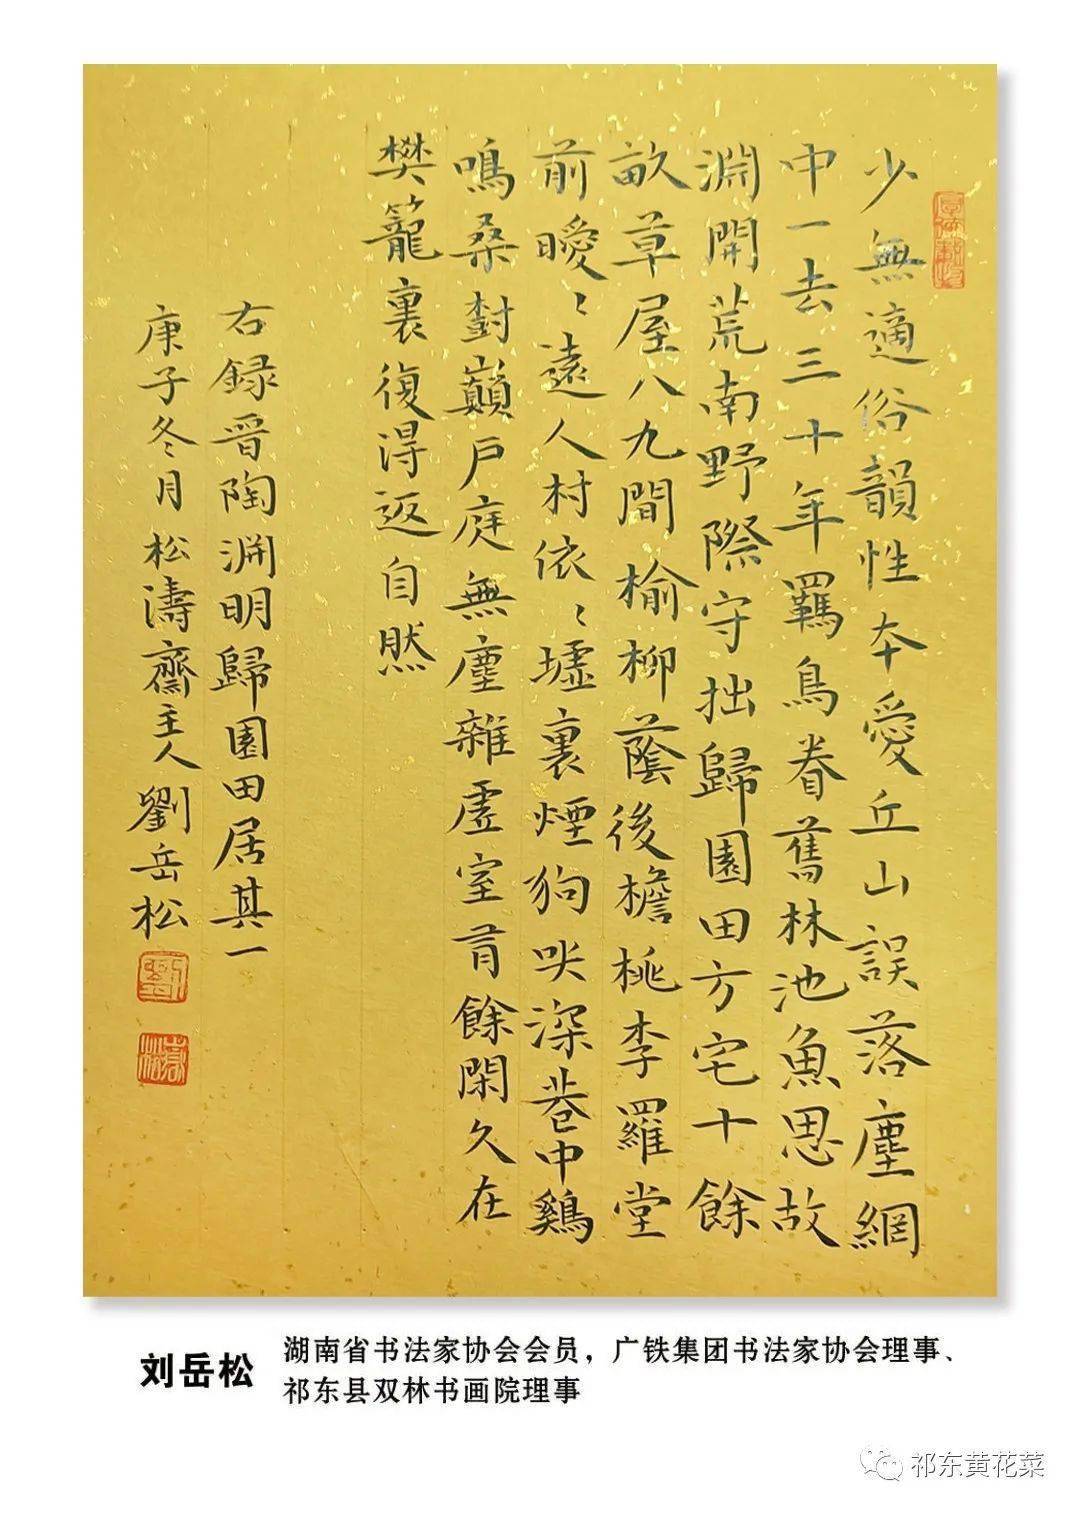 少無適俗韻性本愛丘山誤落塵網
中一去三十年羈鳥眷舊林池魚思故
淵開荒南野際守拙歸園田方宅十餘
畝草屋八九間榆柳蔭後檐桃李羅堂
前曖〻遠人村依〻墟裏煙狗吠深巷中鷄
鳴桑樹巔戶庭無塵雜虛室有餘閑久在
樊籠裏復得返自然
右録晉陶淵明歸園田居其一
庚子冬月松濤齋主人劉岳松
刘岳松
湖南省书法家协会会员，广铁集团书法家协会理事、
祁东县双林书画院理事
祁东黄花菜